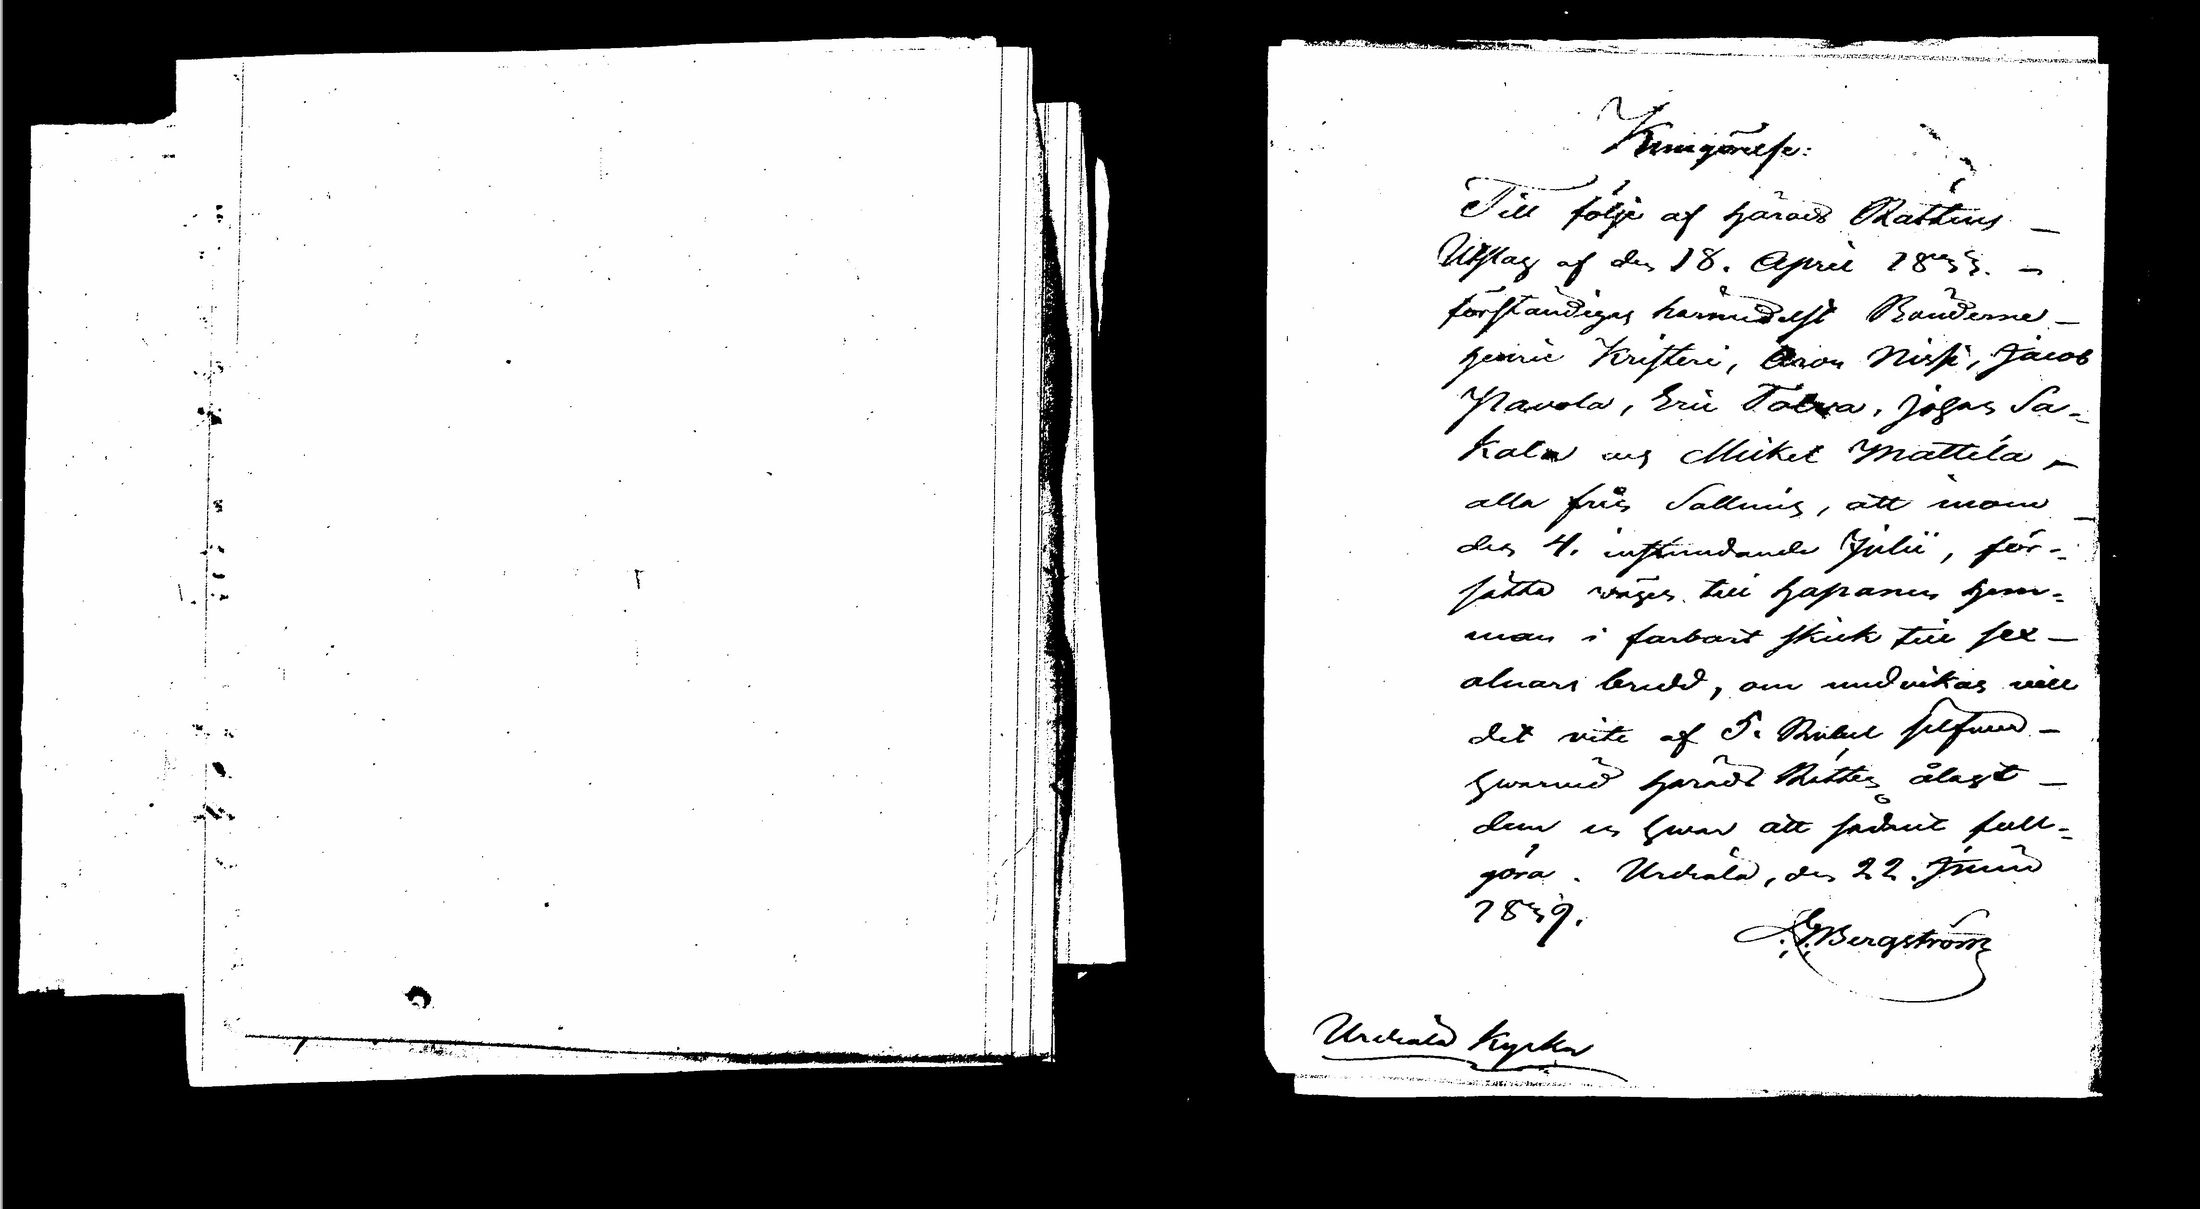 Kungörelse:
Till följe af Härads Rättens
Utslag af den 18. April 1835.
förständigas härmedelst Bönderne
Henric Kristeri, Aron Nissi, Jacob
Navola, Eric Tolva, Johan Sa-
kala och Mickel Mattila
alla från Sallmis, att inom
den 4. instundande Julii, för-
sätta vägen till Hapanen Hem-
man i farbart skick till sex
alnars bredd, om undvikas vill
det vite af 5. Rubel silfver
hvarvid Härads Rätten ålagt
dem en hvar att sådant full-
göra. Urdiala, den 22. Junii
1839.
Bergström
Urdiala Kyrka